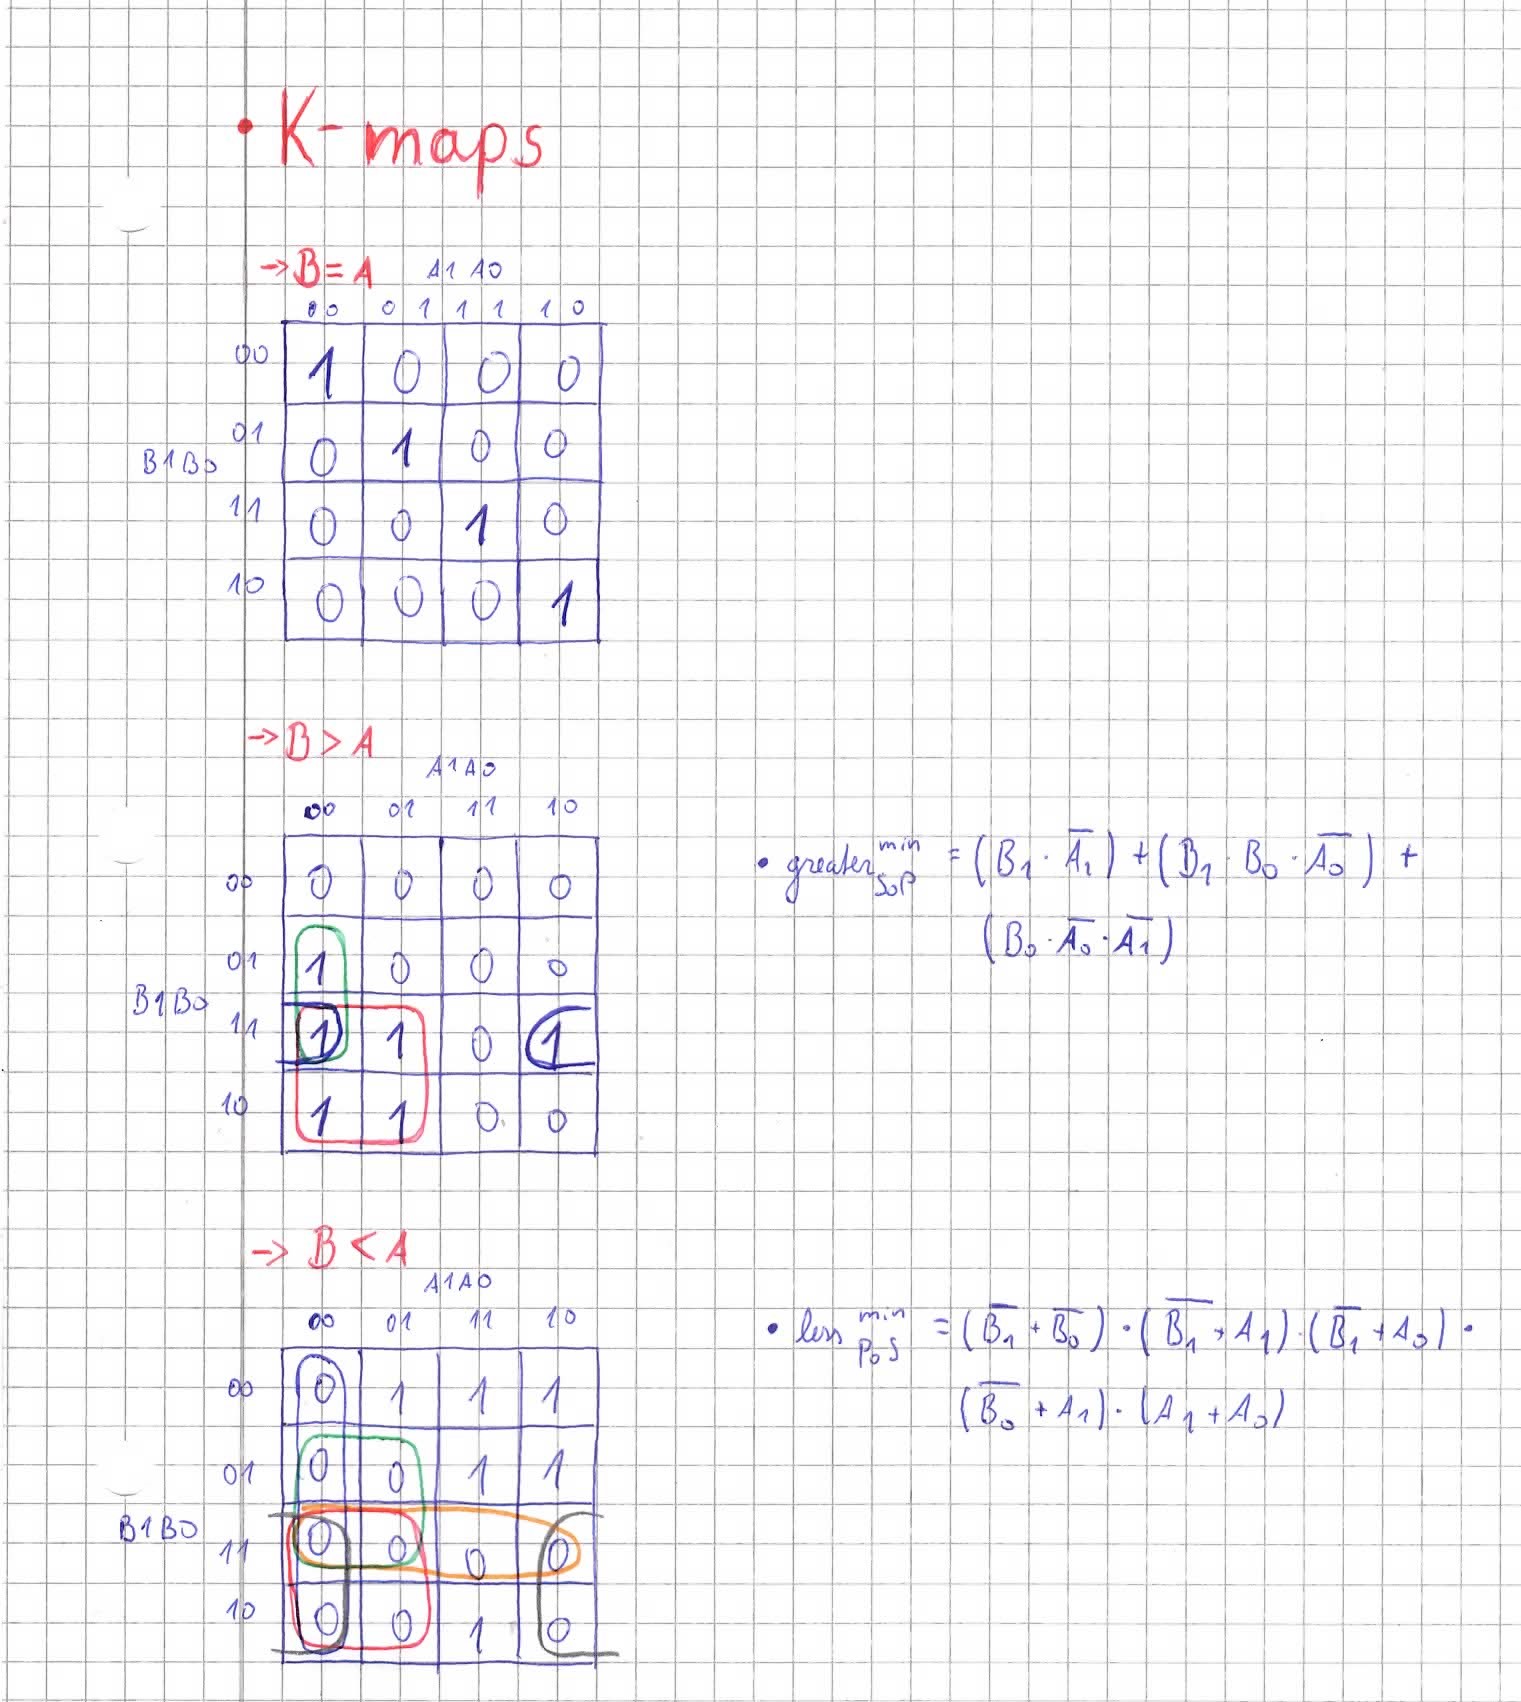 • K-maps
→ B = A A1 A0
00 01 11 10
00 1 0 0 0
01 0 1 0 0
B1B0
11 0 0 1 0
10 0 0 0 1
→ B > A
A1A0
00 01 11 10
00 0 0 0 0
01 1 0 0 0
B1B0
11 1 1 0 1
10 1 1 0 0
• greater min SoP = (B₁ · A̅₁) + (B₁ · B₀ · A̅₀) +
(B₀ · A̅₀ · A̅₁)
→ B < A
A1A0
00 01 11 10
00 0 1 1 1
01 0 0 1 1
B1B0
11 0 0 0 0
10 0 0 1 0
• less min PoS = (B̅₁ + B̅₀) · (B̅₁ + A₁) · (B̅₁ + A₀) ·
(B̅₀ + A₁) · (A₁ + A₀)